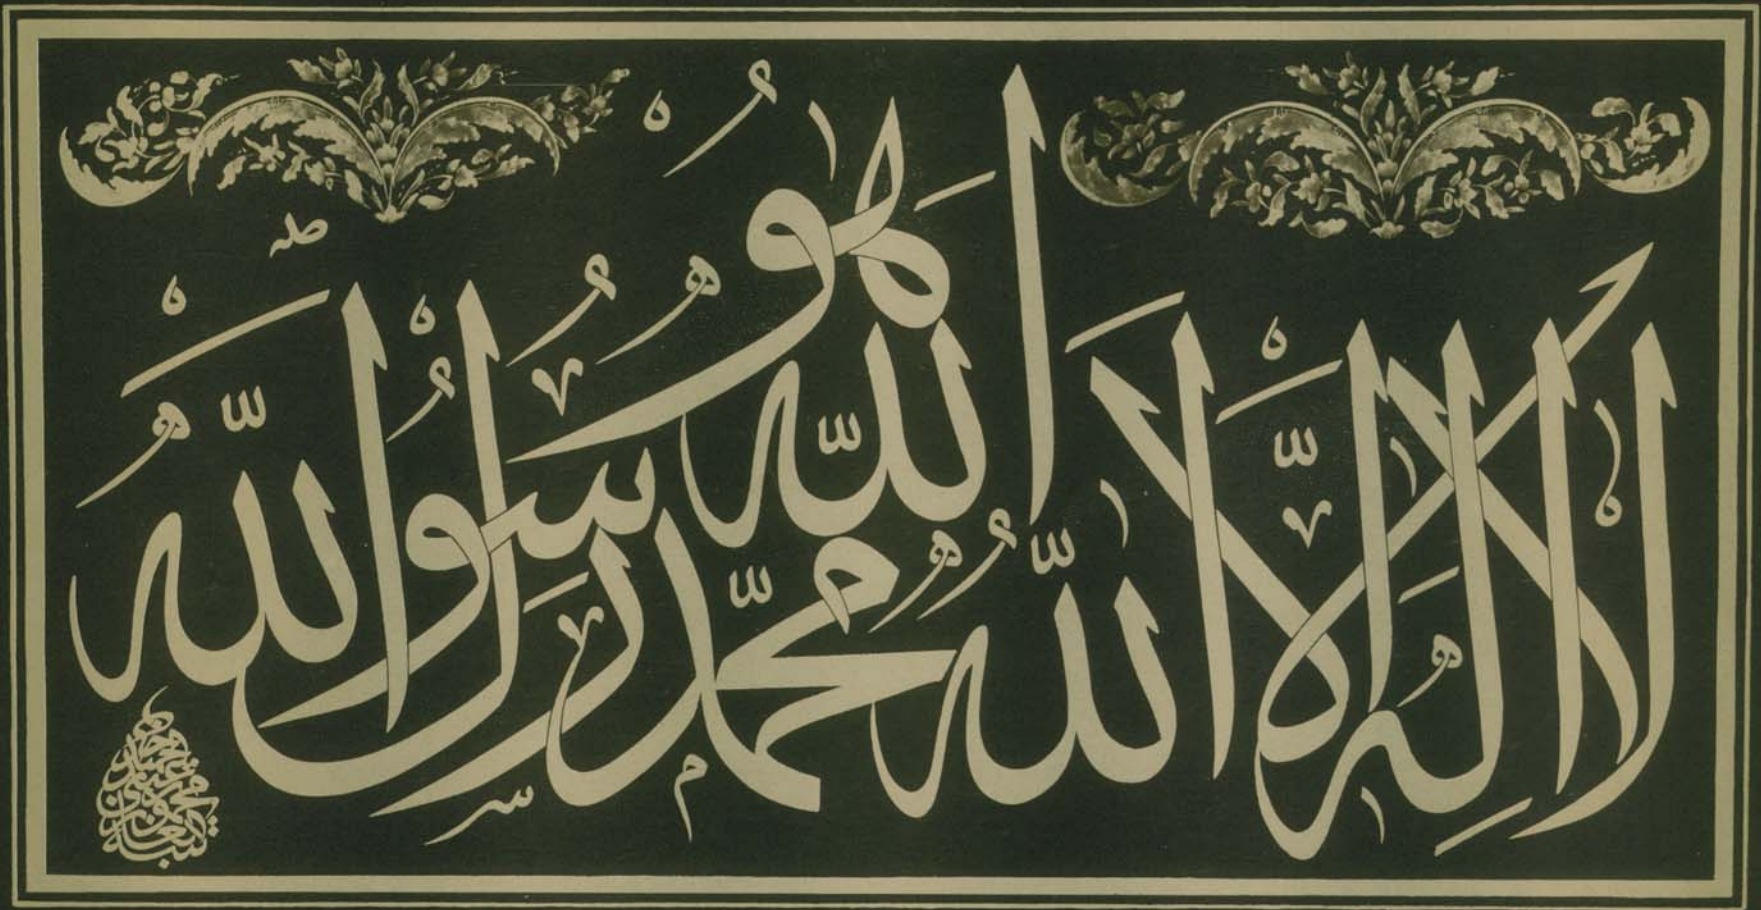 لَا إِلٰهَ إِلَّا اللّٰهُ
هُوَ اللّٰهُ
مُحَمَّدٌ رَسُولُ اللّٰهِ